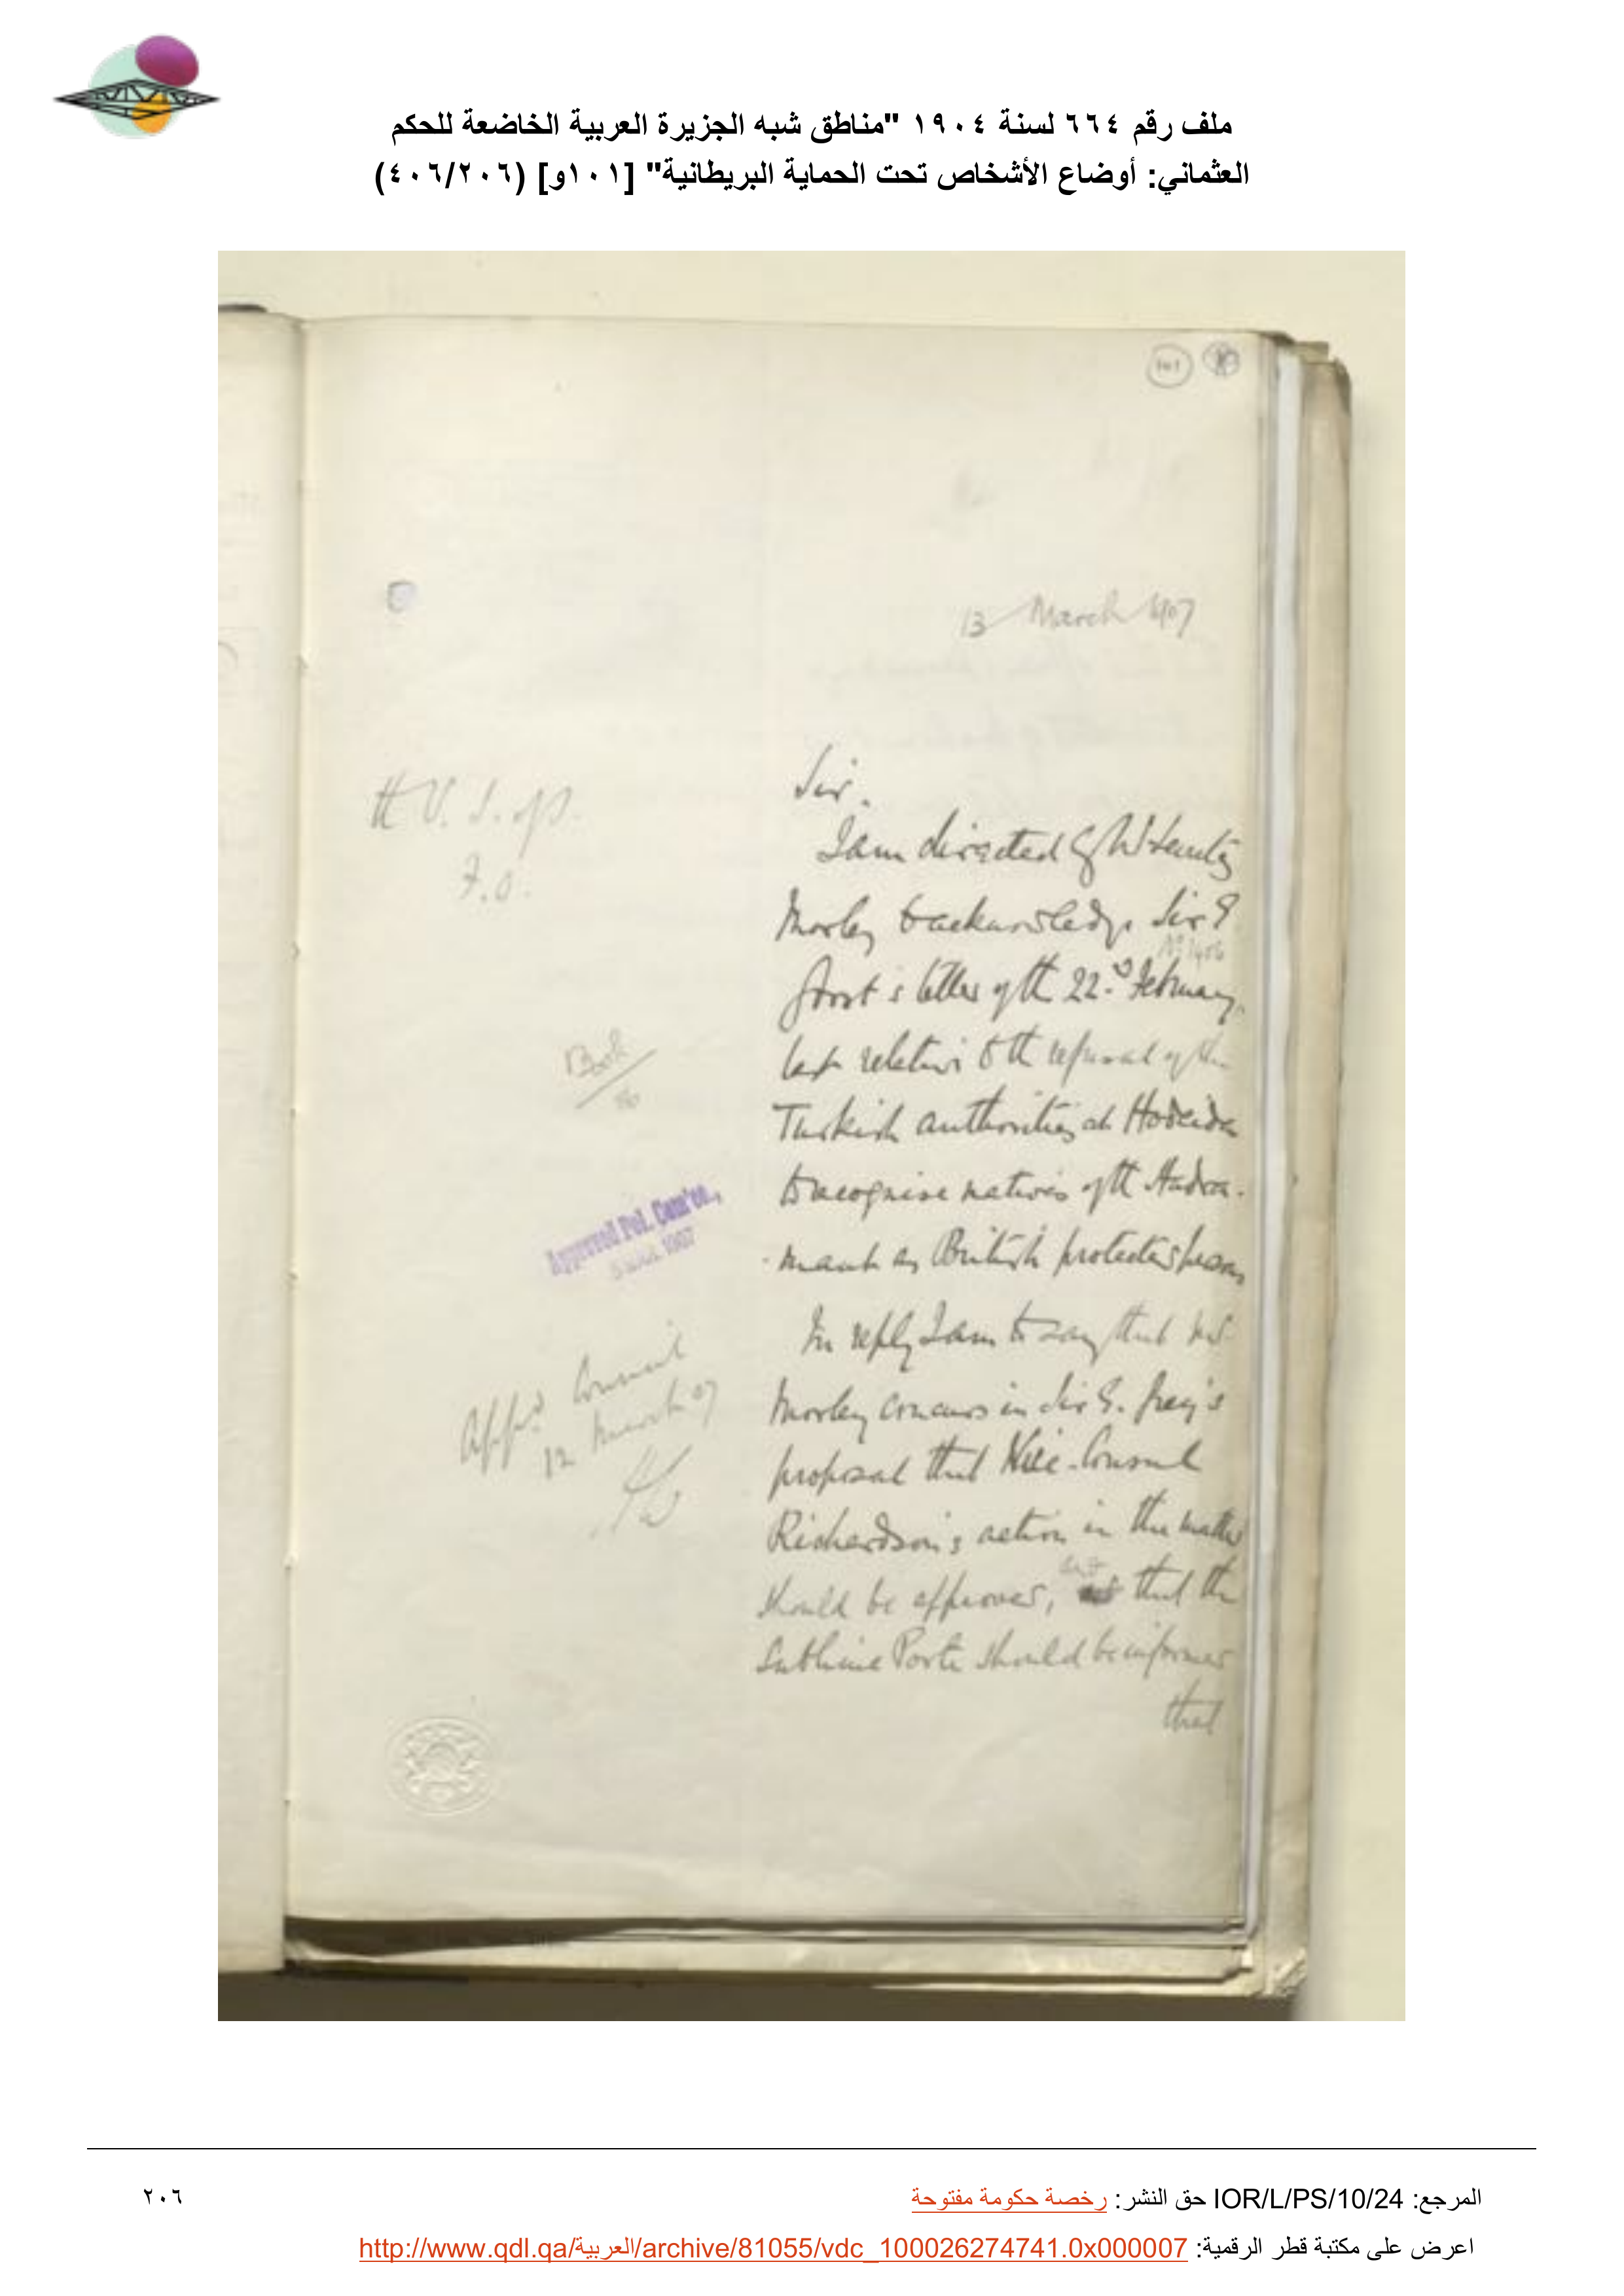 ملف رقم ٦٦٤ لسنة ١٩٠٤ "مناطق شبه الجزيرة العربية الخاضعة للحكم
العثماني: أوضاع الأشخاص تحت الحماية البريطانية" [١٠١و] (٤٠٦/٢٠٦)
101
13 March 1907
Sir.
The U. S. of S.
F.O.
I am directed by Mr Secretary
Morley to acknowledge Sir E
Gorst's letter of the 22nd February
last relative to the refusal of the
Turkish authorities at Hodeida
to recognise natives of the Hadra-
-maut as British protected persons
Approved Pol. Com'ee.,
1907
In reply I am to say that Mr
Morley concurs in Sir E. Grey's
proposal that Vice-Consul
Richardson's action in the matter
should be approved, that the
Sublime Porte should be informed
that
Appd Council
12 March 07
المرجع: IOR/L/PS/10/24 حق النشر: رخصة حكومة مفتوحة
٢٠٦
اعرض على مكتبة قطر الرقمية: http://www.qdl.qa/العربية/archive/81055/vdc_100026274741.0x000007